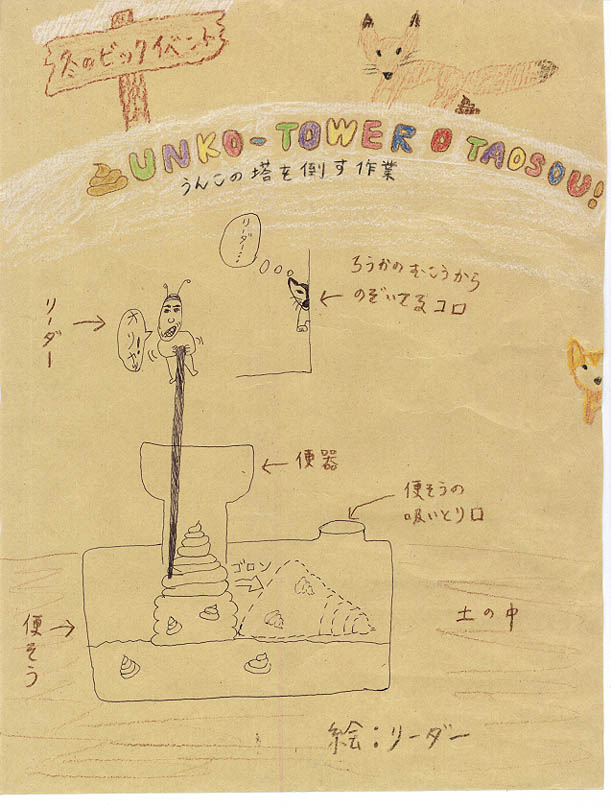 冬のビックイベント
UNKO-TOWER O TAOSOU!
うんこの塔を倒す作業
リーダー…
ろうかのむこうから
のぞいてるコロ
リーダー
オリャ!
便器
便そうの
吸いとり口
ゴロン
便そう
土の中
絵:リーダー